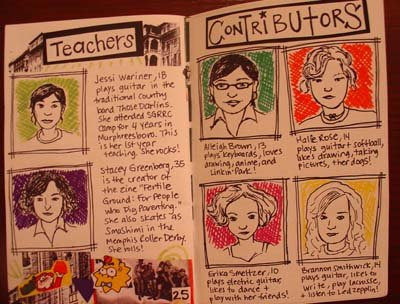 Teachers
Jessi Wariner, 18
plays guitar in the
traditional country
band Those Darlins.
She attended SGRRC
Camp for 4 years in
Murphreesboro. This
is her 1st year
teaching. She rocks!
Stacey Greenberg, 35
is the creator of
the zine "Fertile
Ground: For People
who Dig Parenting."
she also skates as
Smashimi in the
Memphis Roller Derby.
She rolls!
25
CONTRIBUTORS
Alleigh Brown, 13
plays keyboards, loves
drawing, anime, and
Linkin' Park!
Halle Rose, 14
plays guitar + softball,
likes drawing, taking
pictures, + her dogs!
Erika Smeltzer, 10
plays electric guitar
likes to dance +
play with her friends!
Brannon Smithwick, 14
plays guitar, likes to
write, play lacrosse,
+ listen to Led Zepplin!